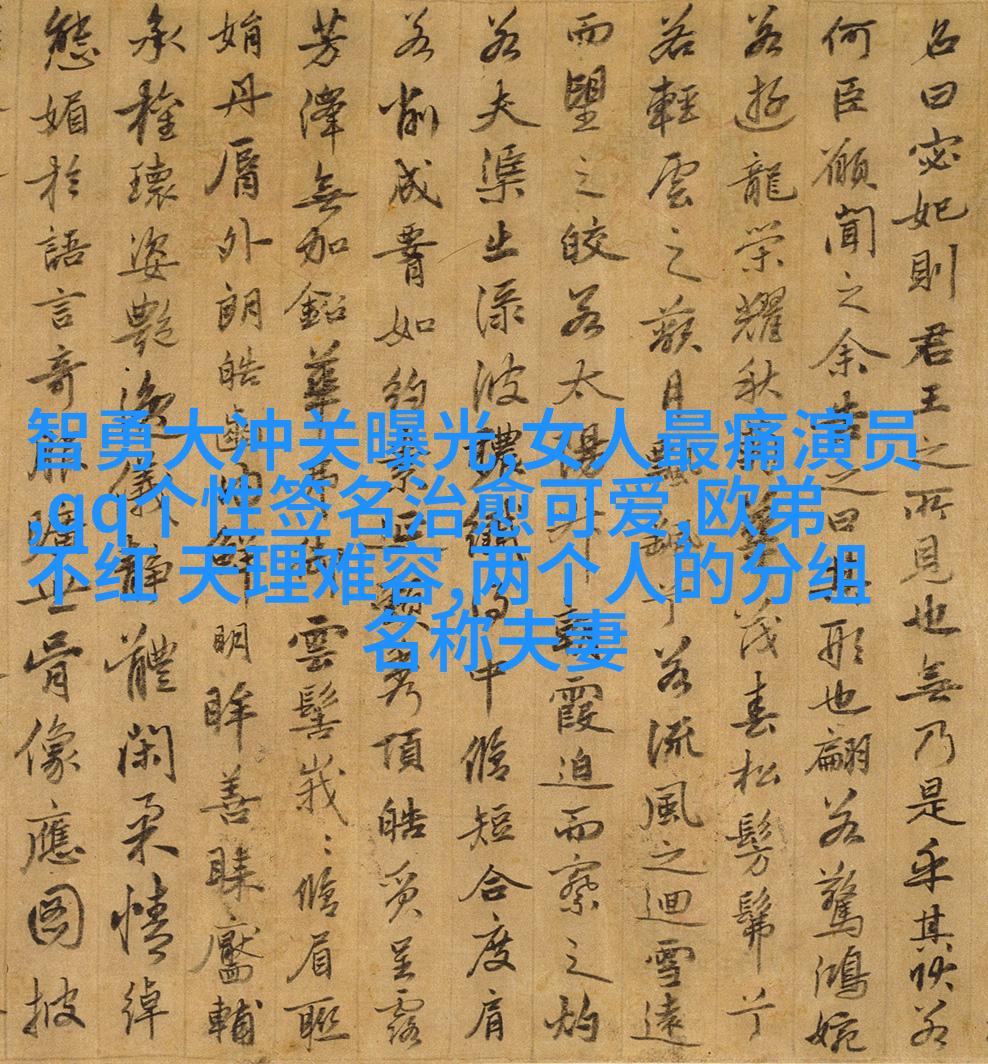 智勇大冲关曝光,女人最痛演员
,qq个性签名治愈可爱,欧弟
不红 天理难容,两个人的分组
名称夫妻
名曰宓妃則君王之所見也無乃是乎其狀若
何臣願聞之余告之曰其形也翩若驚鴻婉
若遊龍榮耀秋華茂春松髣髴兮
若輕雲之蔽月兮若流風之迴雪遠
而望之皎若太陽升朝霞迫而察之灼
若夫渠出淥波穠纖得中脩短合度肩
若削成署如約素延頸秀項皓質呈露
芳澤無加鉛華弗御雲髻峩〻脩眉聯
娟丹脣外朗皓齒內鮮明眸善睞靨輔
承權瓌姿艷逸儀靜體閑柔情綽
態媚於語言奇服曠世骨像應圖披